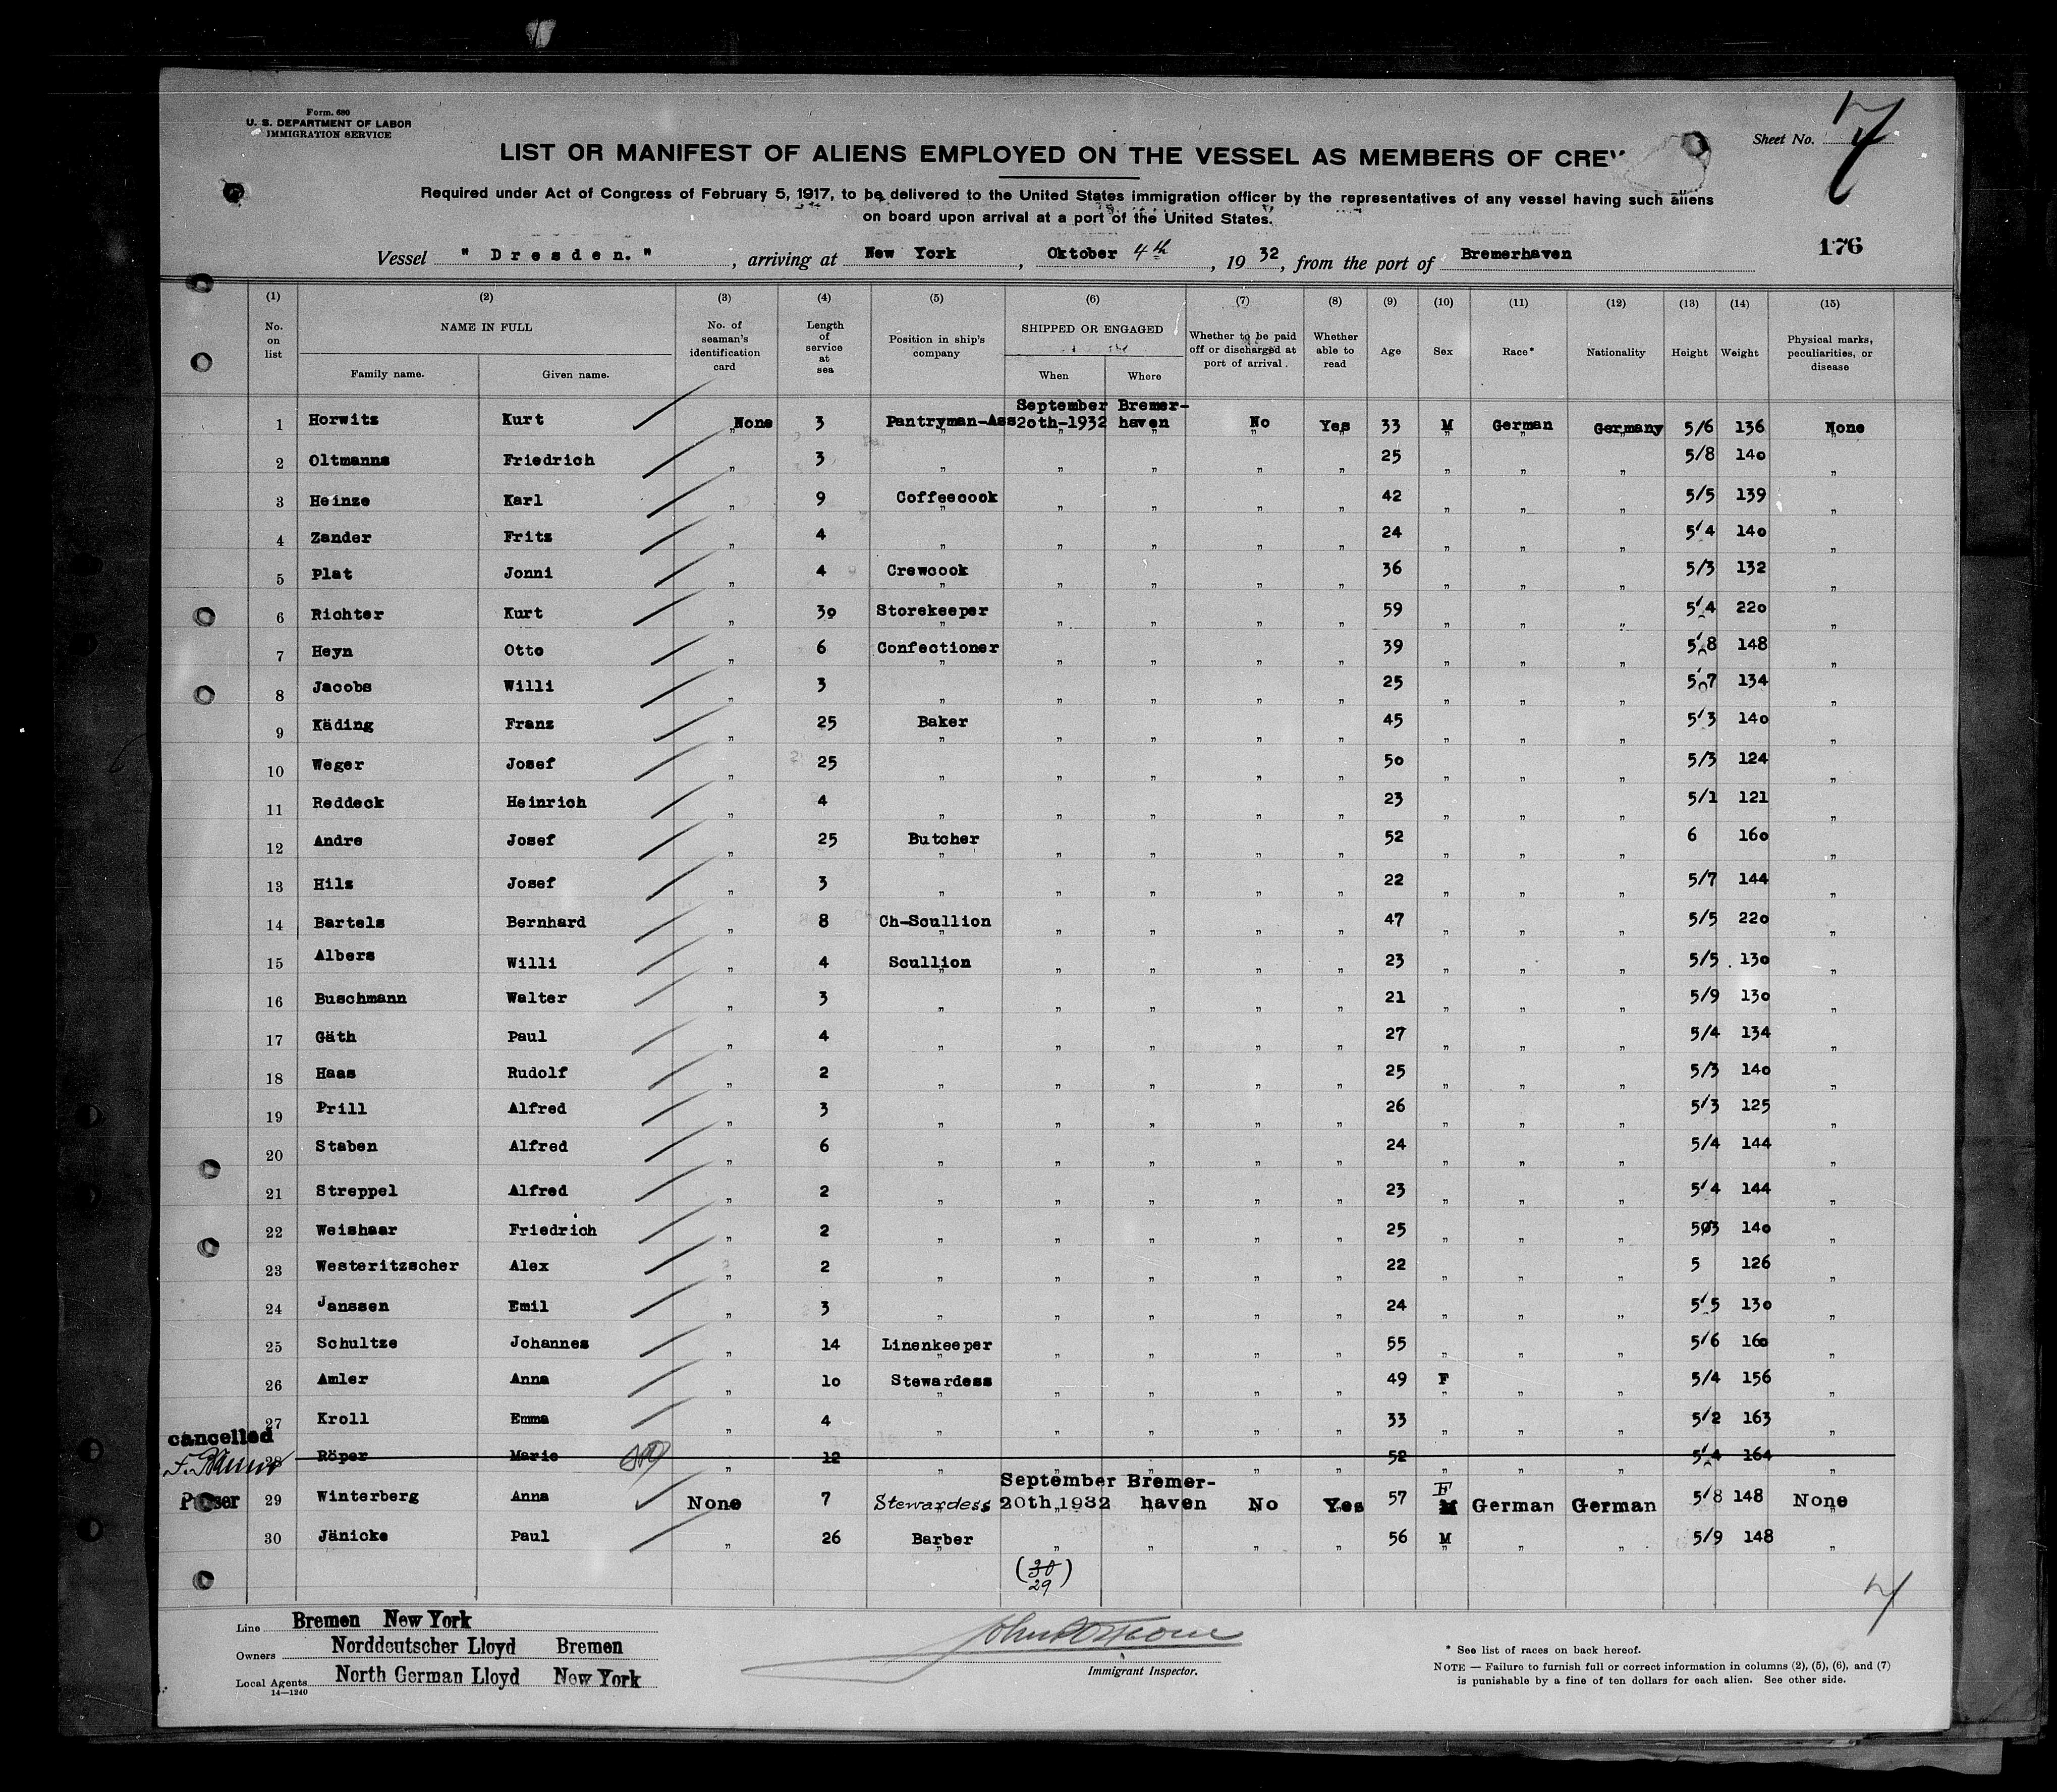 Form. 680
U. S. DEPARTMENT OF LABOR
IMMIGRATION SERVICE
Sheet No. 7
LIST OR MANIFEST OF ALIENS EMPLOYED ON THE VESSEL AS MEMBERS OF CREW
Required under Act of Congress of February 5, 1917, to be delivered to the United States immigration officer by the representatives of any vessel having such aliens
on board upon arrival at a port of the United States.
176
Vessel " Dresden. " , arriving at New York , Oktober 4th , 19 32 , from the port of Bremerhaven
(1) (2) (3) (4) (5) (6) (7) (8) (9) (10) (11) (12) (13) (14) (15)
No. on list NAME IN FULL Family name. Given name. No. of seaman's identification card Length of service at sea Position in ship's company SHIPPED OR ENGAGED When Where Whether to be paid off or discharged at port of arrival. Whether able to read Age Sex Race* Nationality Height Weight Physical marks, peculiarities, or disease
1 Horwitz Kurt None 3 Pantryman-Ass September 20th-1932 Bremer-haven No Yes 33 M German Germany 5/6 136 None
2 Oltmanns Friedrich " 3 " " " " " 25 " " " 5/8 140 "
3 Heinze Karl " 9 Coffeecook " " " " 42 " " " 5/5 139 "
4 Zander Fritz " 4 " " " " " 24 " " " 5/4 140 "
5 Plat Jonni " 4 Crewcook " " " " 36 " " " 5/3 132 "
6 Richter Kurt " 30 Storekeeper " " " " 59 " " " 5/4 220 "
7 Heyn Otto " 6 Confectioner " " " " 39 " " " 5/8 148 "
8 Jacobs Willi " 3 " " " " " 25 " " " 5/7 134 "
9 Käding Franz " 25 Baker " " " " 45 " " " 5/3 140 "
10 Weger Josef " 25 " " " " " 50 " " " 5/3 124 "
11 Reddeck Heinrich " 4 " " " " " 23 " " " 5/1 121 "
12 Andre Josef " 25 Butcher " " " " 52 " " " 6 160 "
13 Hilz Josef " 3 " " " " " 22 " " " 5/7 144 "
14 Bartels Bernhard " 8 Ch-Scullion " " " " 47 " " " 5/5 220 "
15 Albers Willi " 4 Scullion " " " " 23 " " " 5/5 130 "
16 Buschmann Walter " 3 " " " " " 21 " " " 5/9 130 "
17 Gäth Paul " 4 " " " " " 27 " " " 5/4 134 "
18 Haas Rudolf " 2 " " " " " 25 " " " 5/3 140 "
19 Prill Alfred " 3 " " " " " 26 " " " 5/3 125 "
20 Staben Alfred " 6 " " " " " 24 " " " 5/4 144 "
21 Streppel Alfred " 2 " " " " " 23 " " " 5/4 144 "
22 Weishaar Friedrich " 2 " " " " " 25 " " " 5/3 140 "
23 Westeritzscher Alex " 2 " " " " " 22 " " " 5 126 "
24 Janssen Emil " 3 " " " " " 24 " " " 5/5 130 "
25 Schultze Johannes " 14 Linenkeeper " " " " 55 " " " 5/6 160 "
26 Amler Anna " 10 Stewardess " " " " 49 F " " 5/4 156 "
27 Kroll Emma " 4 " " " " " 33 " " " 5/2 163 "
cancelled
28 Röper Marie " 12 " " " " " 52 " " " 5/4 164 "
Purser 29 Winterberg Anna None 7 Stewardess September 20th,1932 Bremer-haven No Yes 57 F German German 5/8 148 None
30 Jänicke Paul " 26 Barber " " " " 56 M " " 5/9 148 "
(30
29)
7
Line Bremen New York
Owners Norddeutscher Lloyd Bremen
Local Agents North German Lloyd New York
14—1240
Immigrant Inspector.
* See list of races on back hereof.
NOTE — Failure to furnish full or correct information in columns (2), (5), (6), and (7)
is punishable by a fine of ten dollars for each alien. See other side.